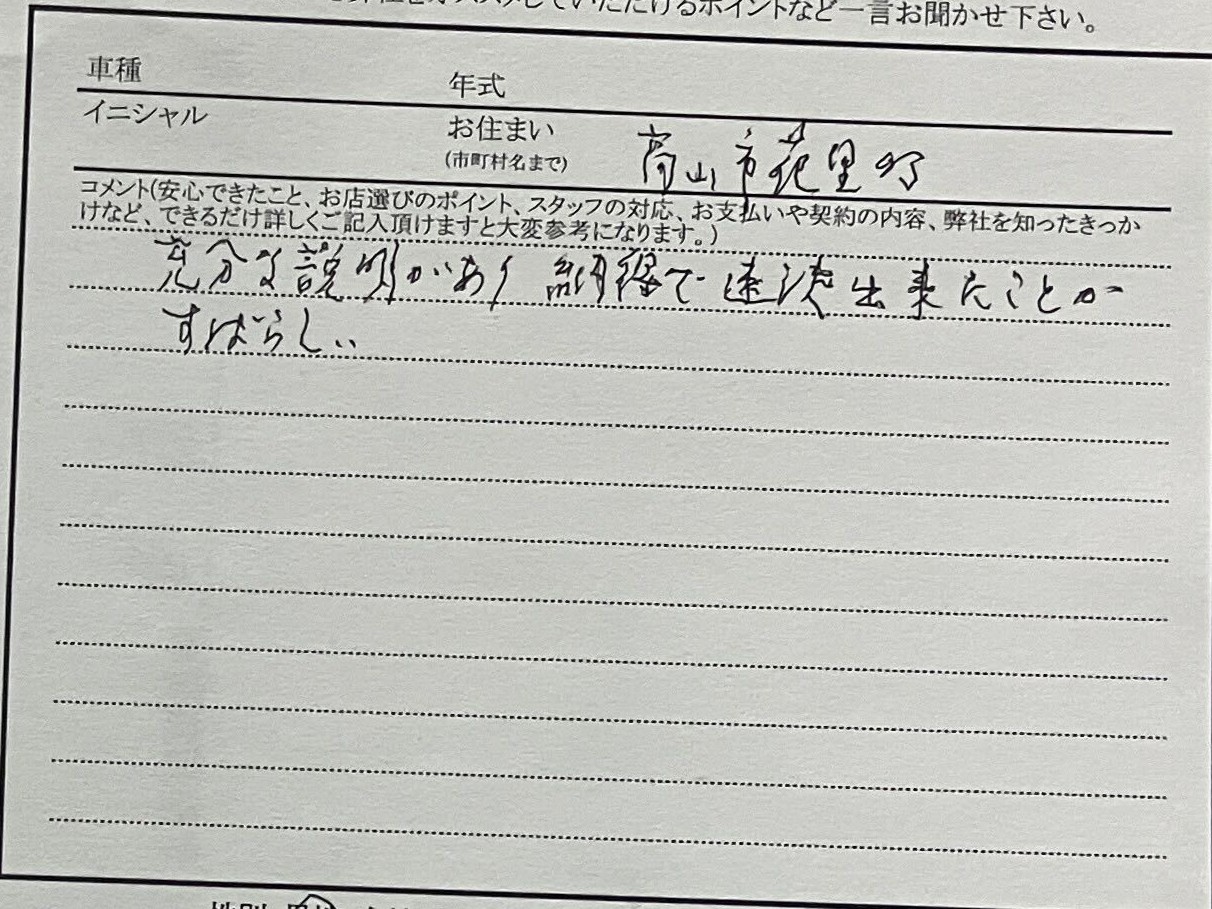 オススメしていただけるポイントなど一言お聞かせ下さい。
車種 年式
イニシャル お住まい 高山市花里町
(市町村名まで)
コメント(安心できたこと、お店選びのポイント、スタッフの対応、お支払いや契約の内容、弊社を知ったきっか
けなど、できるだけ詳しくご記入頂けますと大変参考になります。)
充分な説明があり 納得で 出来たことが
すばらしい
性別